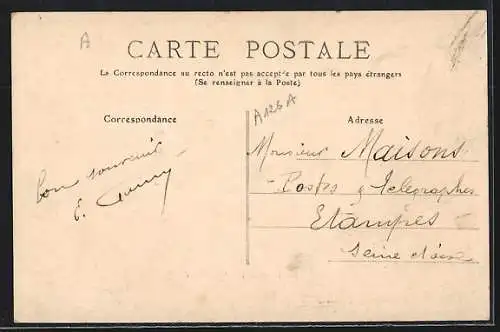 A
CARTE POSTALE
La Correspondance au recto n'est pas acceptée par tous les pays étrangers
(Se renseigner à la Poste)
A126A
Correspondance
Adresse
Bon souvenir
E.
Monsieur Maisons
Postes & Télégraphes
Etampes
Seine et Oise